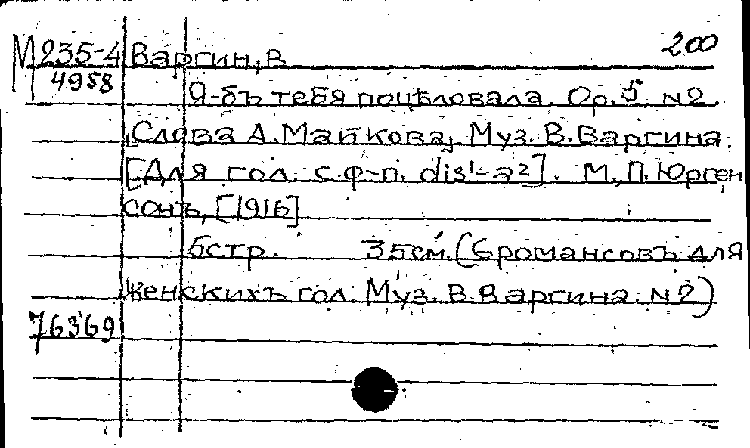 М 235-4 Варгин, В 200
4958 Я-бъ тебя поцѣловала. Op. 5 N2.
Слова А. Майкова, Муз. В. Варгина.
[Для гол. с ф-п. dis¹-a²]. М., П. Юрген
сонъ, [1916]
6 стр. 35 см. (6 романсовъ для
женскихъ гол. Муз. В. Варгина. N2)
76369